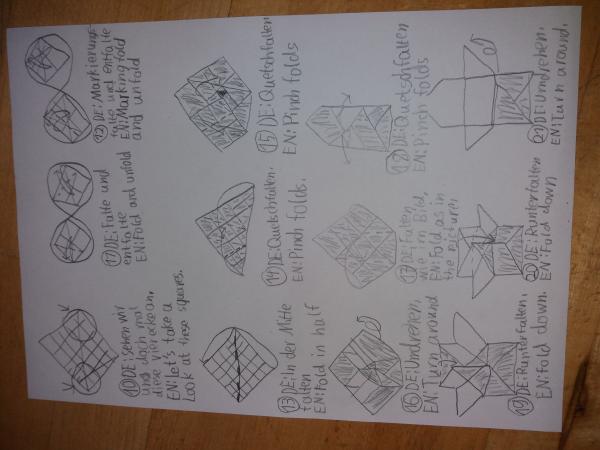 ⑩DE: Sehen wir
und doch mal
diese Vierecke an.
EN: Let's take a
Look at these squares.
⑪DE: Falte und
entfalte
EN: Fold and unfold
⑫DE: Markierungs
falte und entfalte
EN: Marking fold
and unfold
⑬DE: In der Mitte
falten
EN: Fold in half
⑭DE: Quetschfalten.
EN: Pinch folds.
⑮DE: Quetschfalten
EN: Pinch folds
⑯DE: Umdrehen.
EN: Turn around
⑰DE: Falten,
wie im Bild.
EN: Fold as in
the picture.
⑱DE: Quetschfalten
EN: Pinch folds
⑲DE: Runterfalten.
EN: Fold down.
⑳DE: Runterfalten
EN: Fold down
㉑DE: Umdrehen.
EN: Turn around.